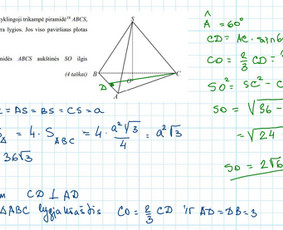 yklingoji trikampė piramidė ABCS,
ra lygios. Jos viso paviršiaus plotas
nidės ABCS aukštinės SO ilgis
(4 taškai)
S
B
C
D
O
A
Â = 60°
CD = AC · sin6
CO = 2/3 CD =
SO² = SC² - C
SO = √36 -
= √24
SO = 2√6
= AS = BS = CS = a
= 4 · S_ABC = 4 · a²√3/4 = a²√3
36√3
CD ⊥ AD
△ABC lygiakraštis CO = 2/3 CD ir AD = DB = 3